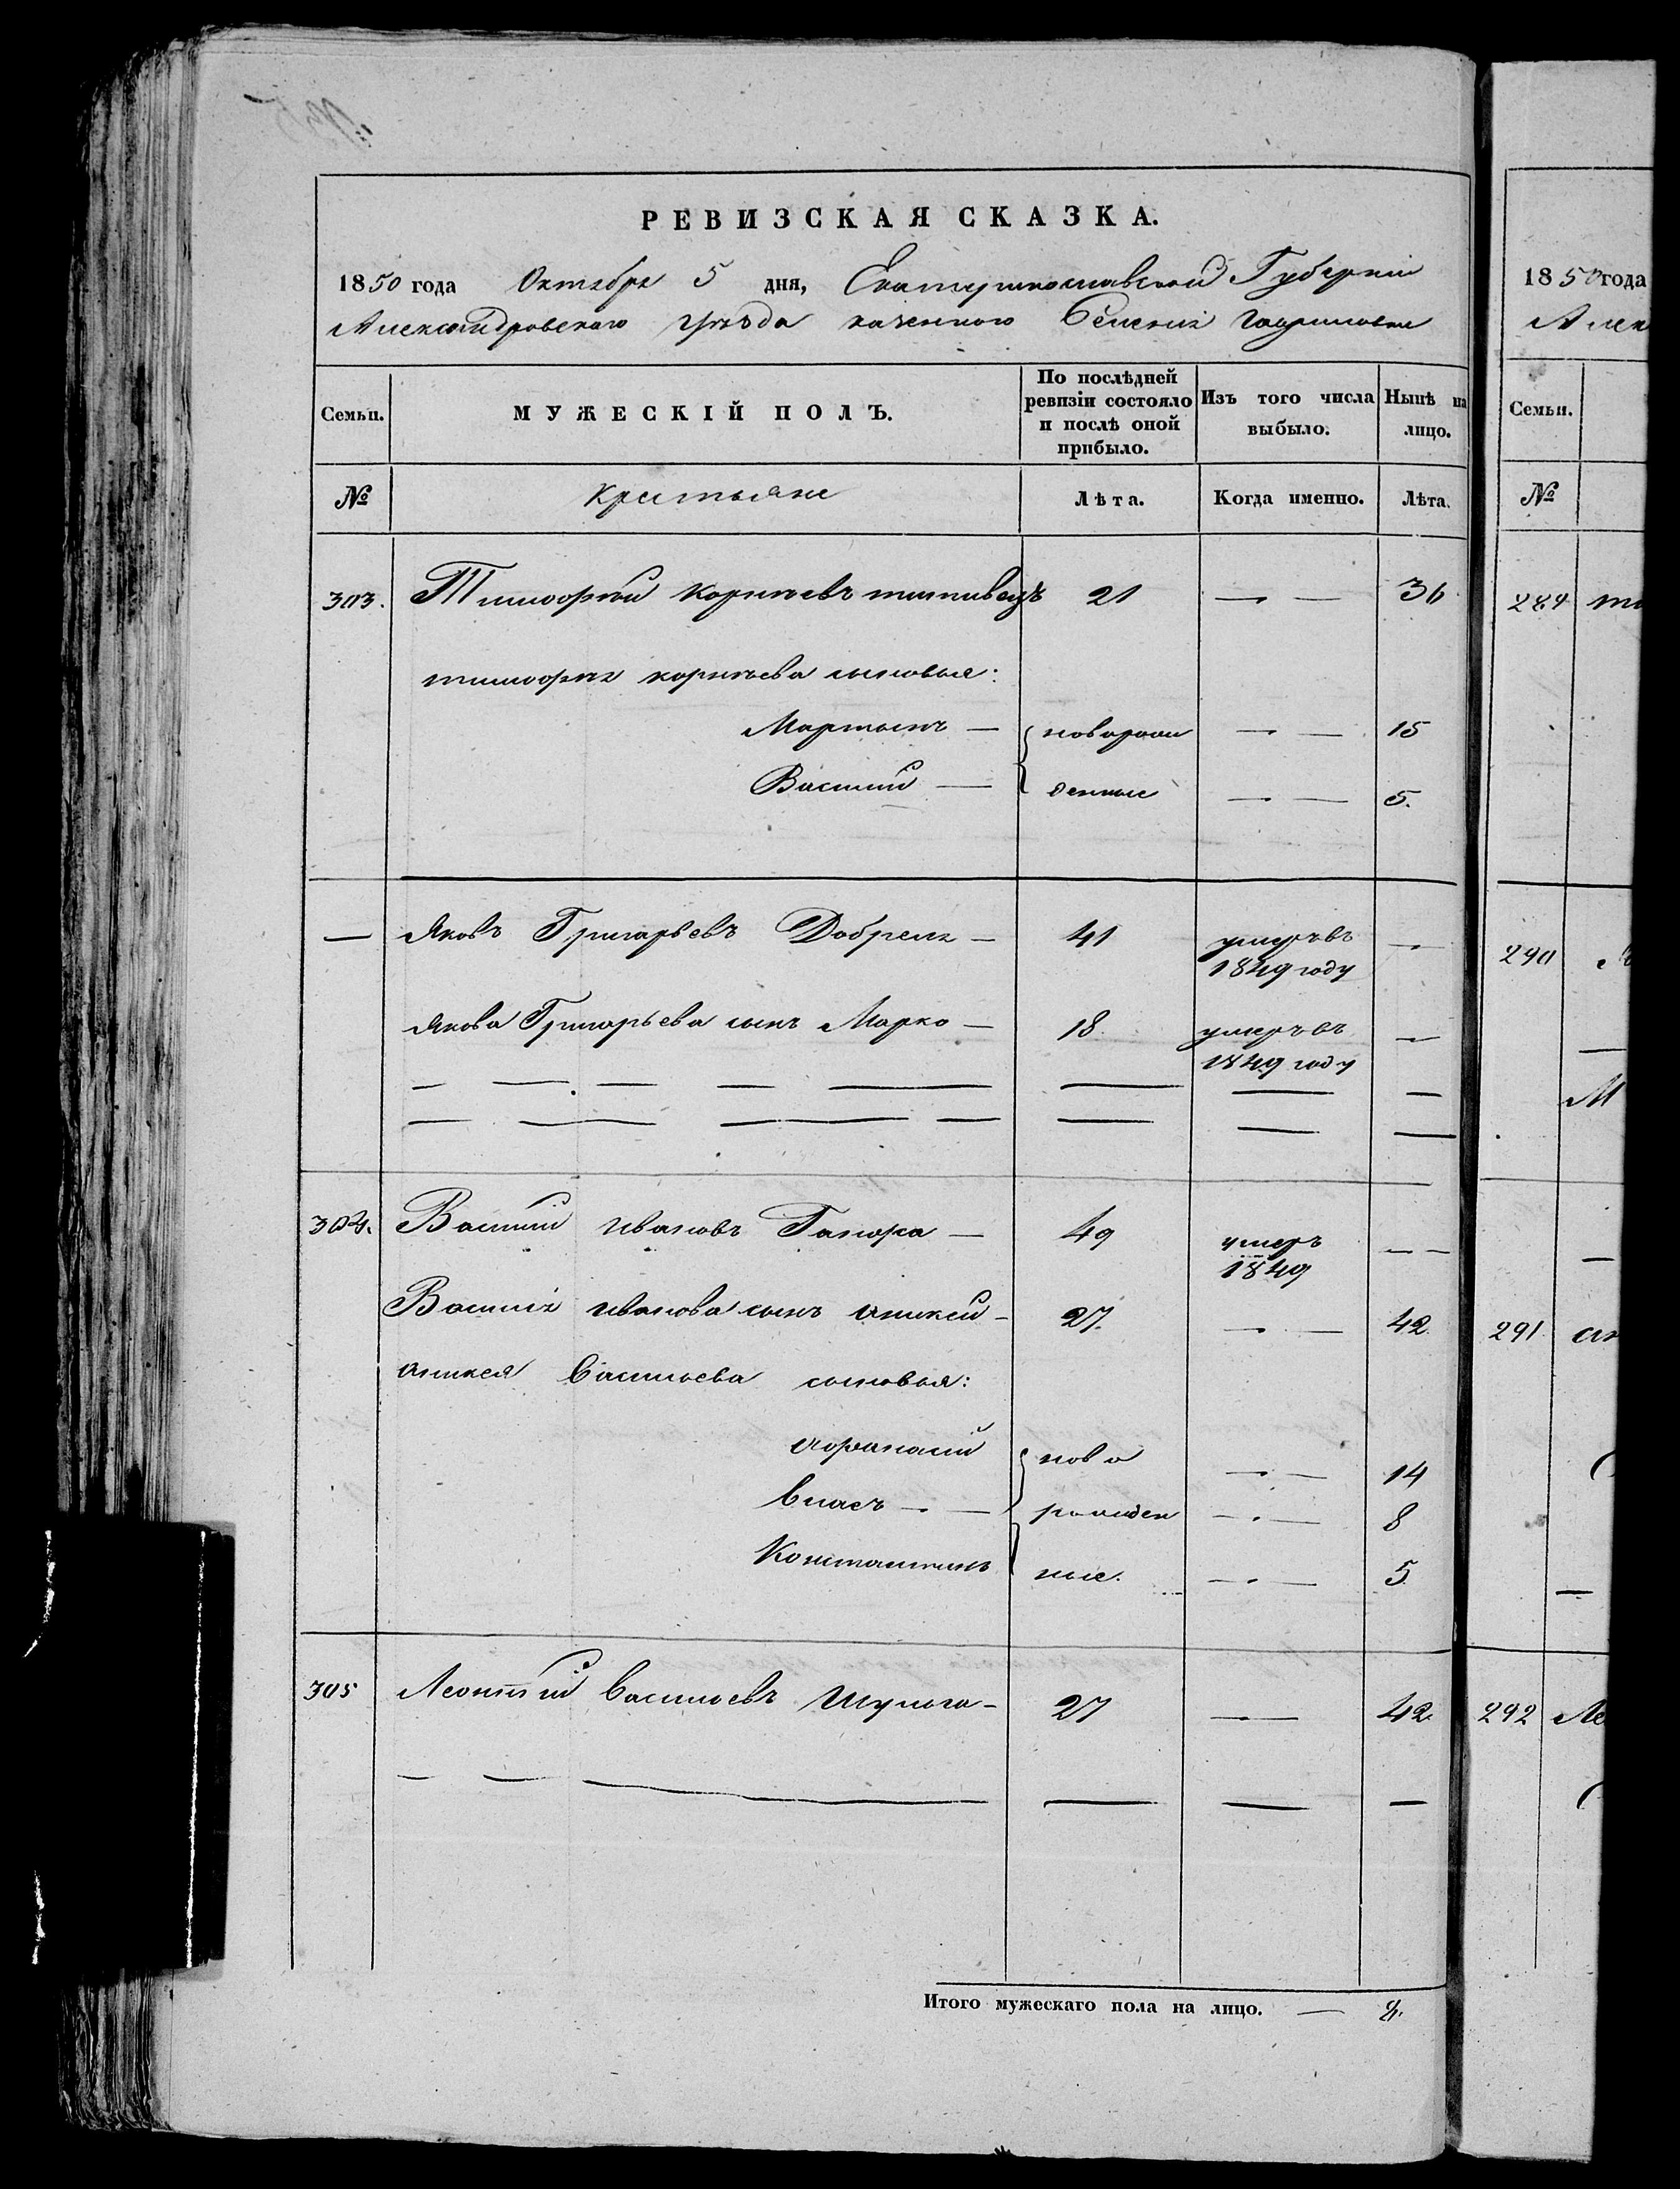 РЕВИЗСКАЯ СКАЗКА.
1850 года Октября 5 дня, Екатеринославской Губерніи
Александровскаго уѣзда казенного Селенія Гавриловки
Семьи.
МУЖЕСКІЙ ПОЛЪ.
По послѣдней ревизіи состояло и послѣ оной прибыло.
Изъ того числа выбыло.
Нынѣ на лицо.
№
крестьяне
Лѣта.
Когда именно.
Лѣта.
303. Тимофѣй корнѣевъ 21 — 36
тимофея корнѣева сыновья:
Мартынъ — новорож 15
Василій — денные 5.
— Яковъ Григорьевъ Добреля — 41 умеръ въ —
1849 году
Якова Григорьева сынъ Марко — 18. умеръ въ —
1849 году
304. Василій Ивановъ Ганжа — 49 умеръ —
1849
Василія Иванова сынъ аникей — 27. — 42.
аникея Васильева сыновья:
афанасій ново — 14
власъ — рожден — 8
Константинъ ные. — 5
305 Леонтій Васильевъ Шульга — 27 — 42.
Итого мужескаго пола на лицо. — 8.
1850 года
Алек
Семьи.
№
284
290
М
291
292 Ле